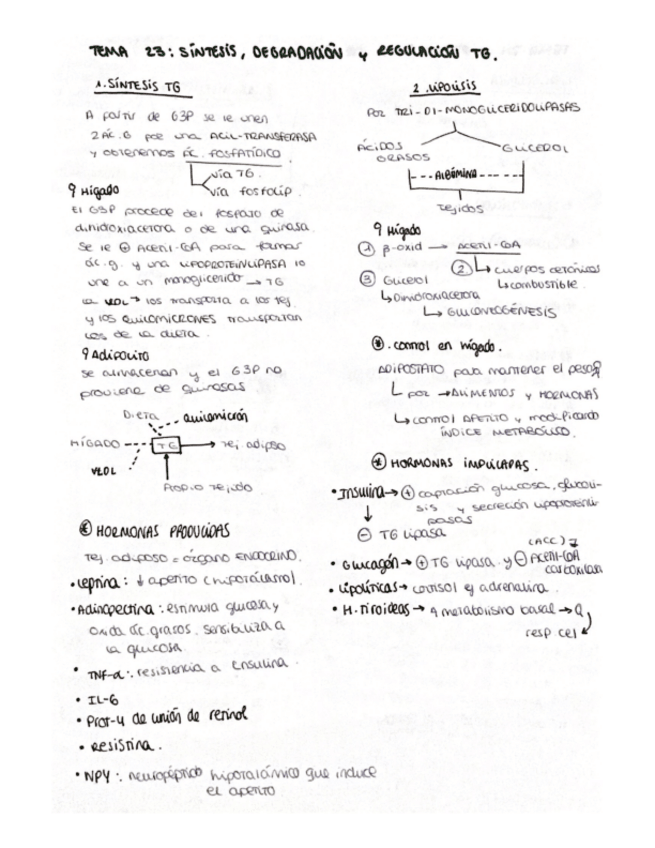 TEMA 23: SÍNTESIS, DEGRADACIÓN y REGULACIÓN TG.
1. SÍNTESIS TG
A partir de G3P se le unen
2 ÁC. G por una ACIL-TRANSFERASA
y obtenemos ÁC. FOSFATÍDICO
vía TG.
vía fosfolíp.
Hígado
El G3P procede del fosfato de
dihidroxiacetona o de una quinasa.
Se le ⊕ ACETIL-COA para formar
ác. g. y una LIPOPROTEINLIPASA lo
une a un monoglicerido → TG
La VLDL → los transporta a los tej
y los QUILOMICRONES transportan
los de la dieta.
Adipocito
se almacenan y el G3P no
proviene de quinasas.
Dieta
quilomicrón
HÍGADO
TG
Tej. adiposo
VLDL
Propio Tejido
* HORMONAS PRODUCIDAS
Tej. adiposo = órgano ENDOCRINO.
• Leptina: ↓ apetito (hipotálamo).
• Adinopectina: estimula glucosa y
oxida ác. grasos. sensibiliza a
la glucosa.
• TNF-α: resistencia a insulina.
• IL-6
• Prot-4 de unión de retinol
• Resistina.
• NPY: neuropéptido hipotalámico que induce
el apetito
2. LIPÓLISIS
Por TRI-DI-MONOGLICERIDOLIPASAS
ÁCIDOS GRASOS
GLICEROL
ALBÚMINA
Tejidos
Hígado
① β-oxid → ACETIL-COA
② ↳ cuerpos cetónicos
↳ combustible.
③ Glicerol
↳ Dihidroxiacetona
↳ GLUCONEOGÉNESIS
* . control en hígado.
ADIPOSTATO para mantener el peso
por → ALIMENTOS y HORMONAS
↳ control APETITO y modificando
ÍNDICE METABÓLICO.
* HORMONAS IMPLICADAS.
• Insulina → ⊕ captación glucosa, glucoli-
sis y secreción lipoprotein-
pasas
↓
⊖ TG lipasa
(ACC)
• Glucagón → ⊕ TG lipasa y ⊖ ACETIL-COA
carboxilasa
• Lipolíticas → cortisol y adrenalina.
• H. tiroideas → metabolismo basal → Q
resp. cel